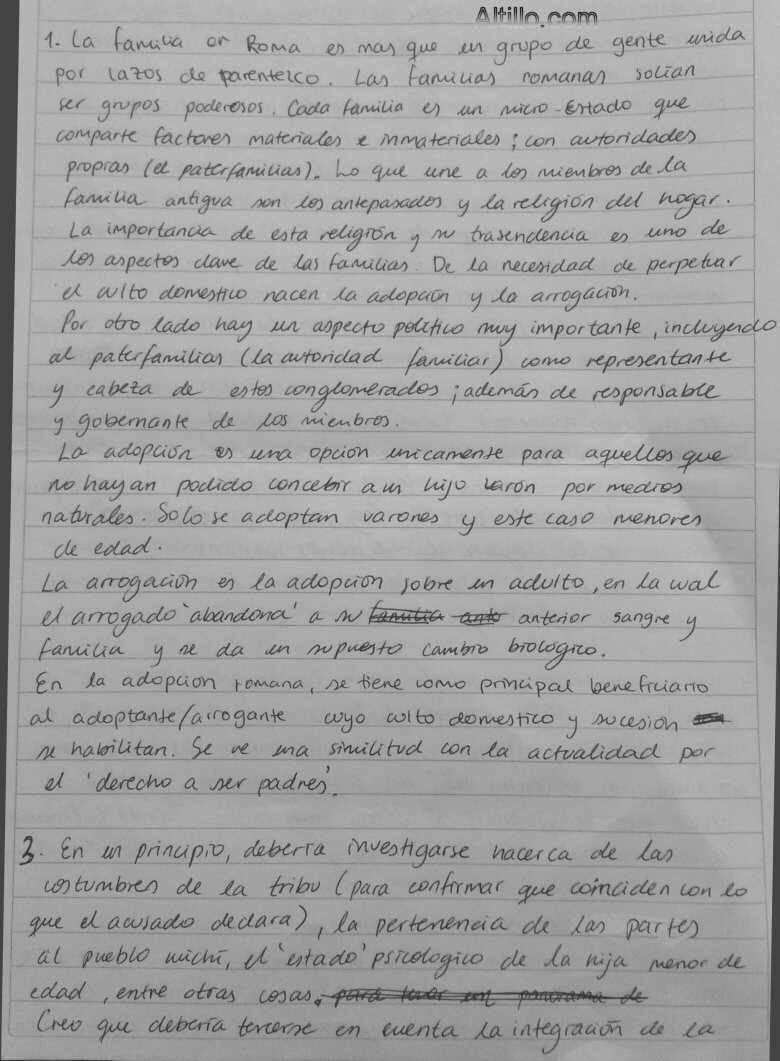 Altillo.com
1. La familia en Roma es mas que un grupo de gente unida
por lazos de parentezco. Las familias romanas solian
ser grupos poderosos. Cada familia es un micro-Estado que
comparte factores materiales e inmateriales; con autoridades
propias (el paterfamilias). Lo que une a los miembros de la
familia antigua son los antepasados y la religión del hogar.
La importancia de esta religión y su trasendencia es uno de
los aspectos clave de las familias. De la necesidad de perpetuar
el culto domestico nacen la adopción y la arrogación.
Por otro lado hay un aspecto político muy importante, incluyendo
al paterfamilias (la autoridad familiar) como representante
y cabeza de estos conglomerados; además de responsable
y gobernante de los miembros.
La adopción es una opción unicamente para aquellos que
no hayan podido concebir a un hijo varón por medios
naturales. Solo se adoptan varones y este caso menores
de edad.
La arrogación es la adopción sobre un adulto, en la cual
el arrogado 'abandona' a su familia ante anterior sangre y
familia y se da un supuesto cambio biologico.
En la adopcion romana, se tiene como principal beneficiario
al adoptante/arrogante cuyo culto domestico y sucesion
se habilitan. Se ve una similitud con la actualidad por
el 'derecho a ser padres'.
3. En un principio, debería investigarse hacerca de las
costumbres de la tribu (para confirmar que coinciden con lo
que el acusado declara), la pertenencia de las partes
al pueblo wichí, el 'estado' psicologico de la hija menor de
edad, entre otras cosas. para tener un panorama de
Creo que debería tenerse en cuenta la integración de la